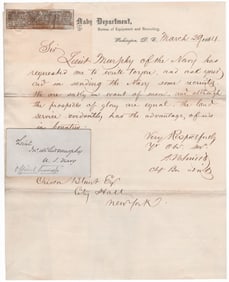 Navy Department,
Bureau of Equipment and Recruiting,
Washington D. C. March 29 1864
Sir
Lieut Murphy of the Navy has
requested me to write to you, and ask your
aid in sending the Navy some recruits
the one
in want of men and although
the prospects of glory are equal the land
service evidently has the advantage, of us
in bounties.
Very Respectfully
Yr Obt
A N Smith
Lieut
U. S. Navy
Orison Blunt Esq
City Hall
New York